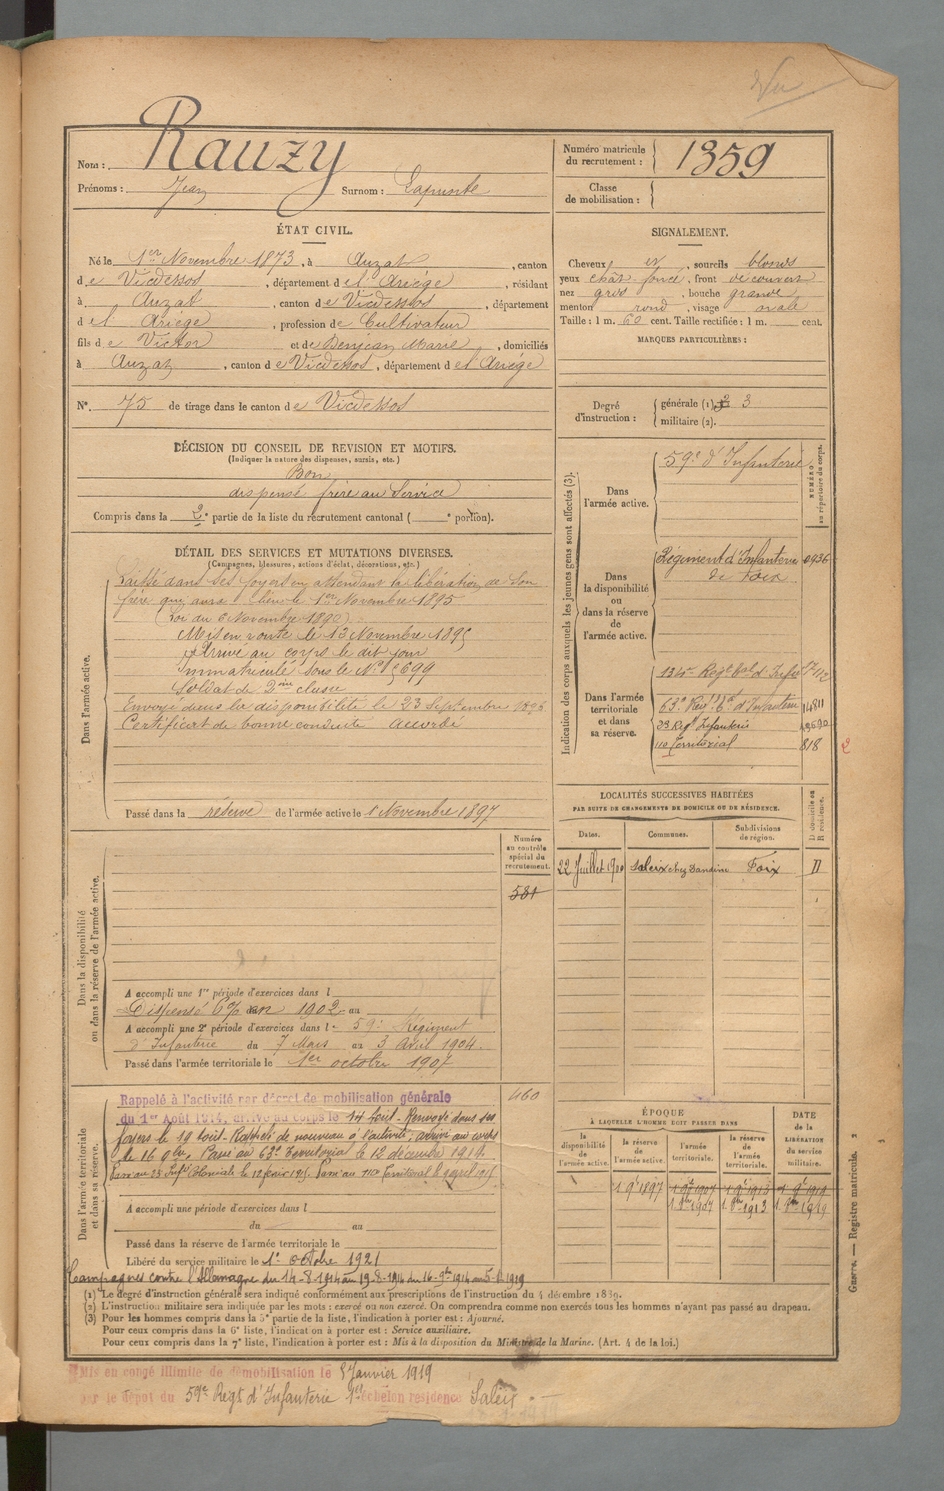 Vu
Nom : Rauzy
Prénoms : Jean Surnom : Lapuste
Numéro matricule du recrutement : 1359
Classe de mobilisation :
ÉTAT CIVIL.
Né le 1er Novembre 1873, à Auzat, canton
de Vicdessos, département de l'Ariège, résidant
à Auzat, canton de Vicdessos, département
de l'Ariège, profession de Cultivateur
fils de Victor et de Benjean Marie, domiciliés
à Auzat, canton de Vicdessos, département de l'Ariège
N° 75 de tirage dans le canton de Vicdessos
SIGNALEMENT.
Cheveux et, sourcils blonds
yeux chât. foncé, front découvert
nez gros, bouche grande
menton rond, visage ovale
Taille : 1 m. 60 cent. Taille rectifiée : 1 m. cent.
MARQUES PARTICULIÈRES :
Degré d'instruction : générale (1). 3
militaire (2).
DÉCISION DU CONSEIL DE REVISION ET MOTIFS.
(Indiquer la nature des dispenses, sursis, etc.)
Bon
dispensé frère au Service
Compris dans la 2e partie de la liste du recrutement cantonal ( e portion).
DÉTAIL DES SERVICES ET MUTATIONS DIVERSES.
(Campagnes, blessures, actions d'éclat, décorations, etc.)
Dans l'armée active.
Laissé dans ses foyers en attendant la libération de son
frère qui aura lieu le 1er Novembre 1895
(Loi du 6 Novembre 1890)
Mis en route le 13 Novembre 1895
Arrivé au corps le dit jour
immatriculé sous le N° 5699
Soldat de 2me classe
Envoyé dans la disponibilité le 23 Septembre 1896
Certificat de bonne conduite accordé
Passé dans la réserve de l'armée active le 1 Novembre 1897
Indication des corps auxquels les jeunes gens sont affectés (3).
NUMÉRO au répertoire du corps.
Dans l'armée active. 59e d'Infanterie
Dans la disponibilité ou dans la réserve de l'armée active. Régiment d'Infanterie 0936
de Foix
Dans l'armée territoriale et dans sa réserve.
134e Regt tal d'Infie
63e Regt d'Infanterie 14811
23 Regt Infanterie
110 Territorial 818
2
LOCALITÉS SUCCESSIVES HABITÉES
PAR SUITE DE CHANGEMENTS DE DOMICILE OU DE RÉSIDENCE.
D domicile ou R résidence.
Dates. Communes. Subdivisions de région.
22 Juillet 1900 Saleix chez Dandine Foix D
Numéro au contrôle spécial du recrutement.
581
Dans la disponibilité ou dans la réserve de l'armée active.
A accompli une 1re période d'exercices dans l
Dispensé 6% en 1902 au
A accompli une 2e période d'exercices dans l 59e Régiment
d'Infanterie du 7 Mars au 3 Avril 1904.
Passé dans l'armée territoriale le 1er octobre 1907
Dans l'armée territoriale et dans sa réserve.
460
Rappelé à l'activité par décret de mobilisation générale
du 1er Août 1914, arrivé au corps le 14 Août. Renvoyé dans ses
foyers le 19 Août. Rappelé de nouveau à l'activité, arrivé au corps
le 16 9bre. Passé au 63e Territorial le 12 décembre 1914.
Passé au 23 Infie Coloniale le 12 février 1915. Passé au 110e Territorial le
A accompli une période d'exercices dans l
du au
Passé dans la réserve de l'armée territoriale le
Libéré du service militaire le 1er octobre 1921
Campagnes contre l'Allemagne du 14-8-1914 au 19-8-1914 du 16-9bre 1914 au 5-1-1919
ÉPOQUE
À LAQUELLE L'HOMME DOIT PASSER DANS
la disponibilité de l'armée active. la réserve de l'armée active. l'armée territoriale. la réserve de l'armée territoriale.
DATE DE LA LIBÉRATION DU SERVICE MILITAIRE.
1 9e 1897 1 9e 1907 1 9e 1913 1 9e 1919
1 8bre 1907 1 8bre 1913 1 8bre 1919
(1) Le degré d'instruction générale sera indiqué conformément aux prescriptions de l'instruction du 4 décembre 1889.
(2) L'instruction militaire sera indiquée par les mots : exercé ou non exercé. On comprendra comme non exercés tous les hommes n'ayant pas passé au drapeau.
(3) Pour les hommes compris dans la 5e partie de la liste, l'indication à porter est : Ajourné.
Pour ceux compris dans la 6e liste, l'indication à porter est : Service auxiliaire.
Pour ceux compris dans la 7e liste, l'indication à porter est : Mis à la disposition du Ministre de la Marine. (Art. 4 de la loi.)
Guerre. — Registre matricule. 2
Mis en congé illimité de démobilisation le 5 Janvier 1919
par le dépôt du 59e Regt d'Infanterie 1er échelon residence Saleix